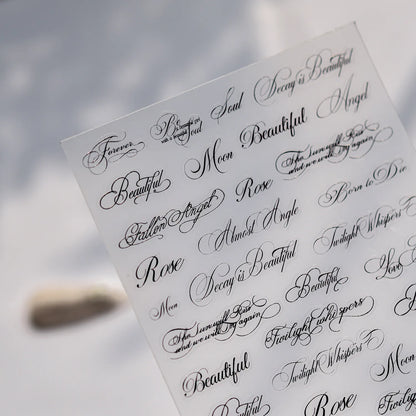 Forever
Be
Soul
Soul
Decay is Beautiful
Beautiful
Moon
Beautiful
Angel
Fallen Angel
Rose
The sun will Rise
and we will try again
Rose
Almost Angle
Born to Die
Moon
Decay is Beautiful
Twilight Whispers
The sun will Rise
and we will try again
Beautiful
Love
Beautiful
Twilight whispers
Twilight Whispers
Moon
Rose